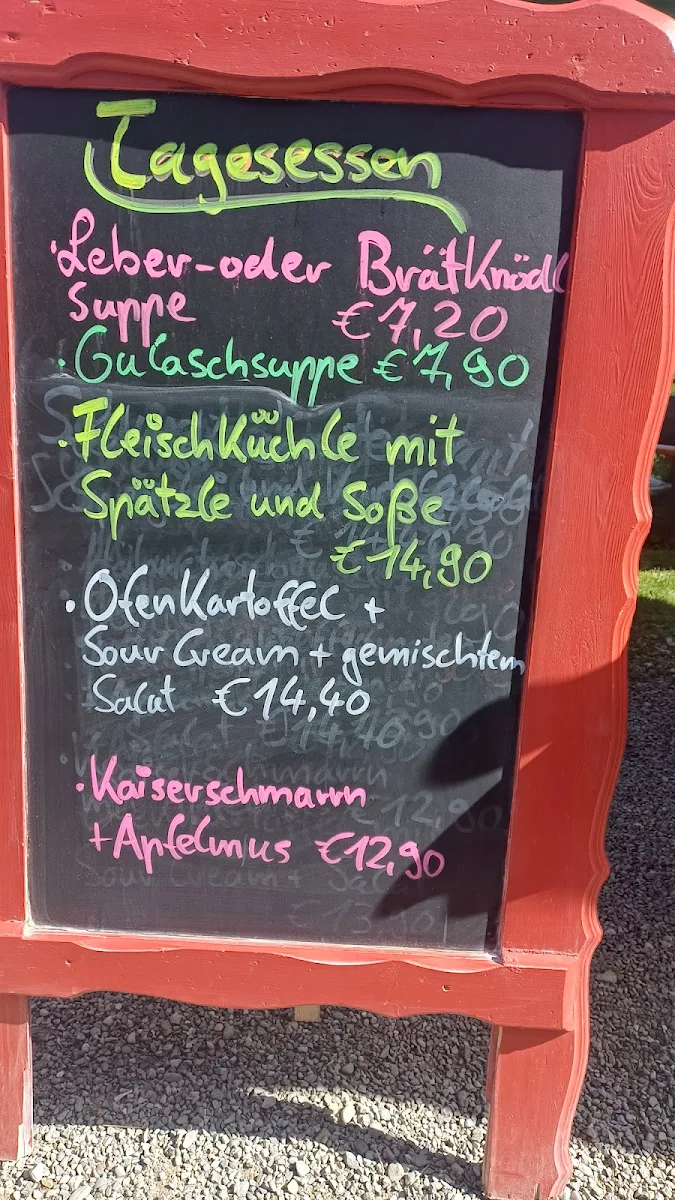 Tagesessen
· Leber-oder BrätKnödl
suppe €7,20
· Gulaschsuppe €7,90
· Fleischküchle mit
Spätzle und Soße
€14,90
· OfenKartoffel +
Sour Cream + gemischtem
Salat €14,40
· Kaiserschmarrn
+Apfelmus €12,90